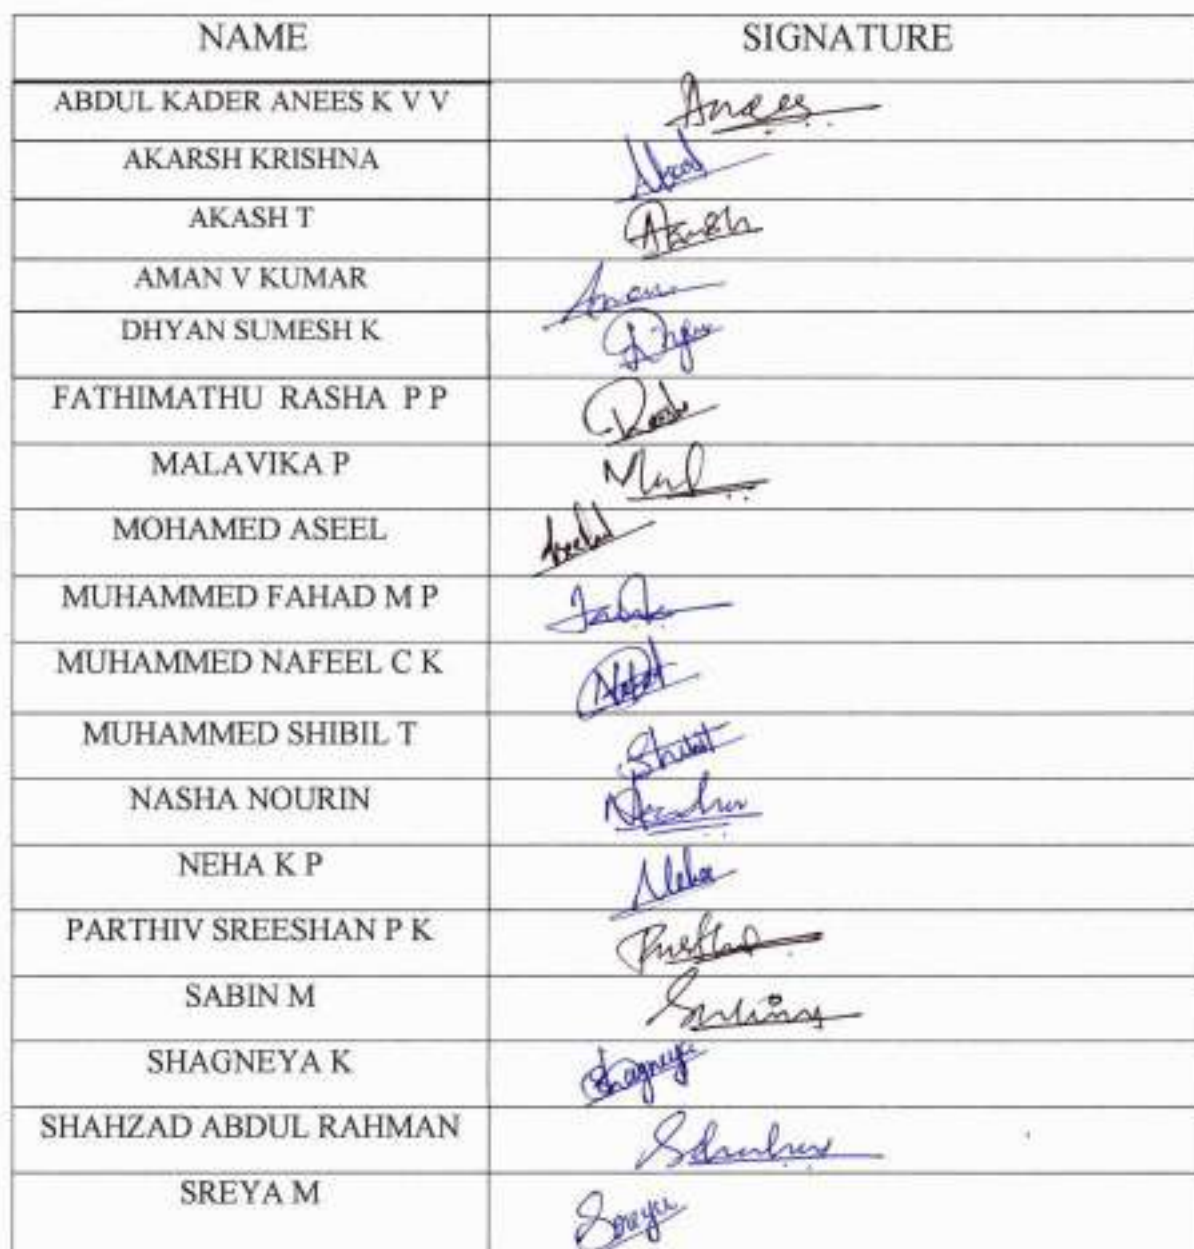 NAME SIGNATURE
ABDUL KADER ANEES K V V Anees
AKARSH KRISHNA
AKASH T Akash
AMAN V KUMAR Aman
DHYAN SUMESH K
FATHIMATHU RASHA P P Rasha
MALAVIKA P
MOHAMED ASEEL
MUHAMMED FAHAD M P
MUHAMMED NAFEEL C K
MUHAMMED SHIBIL T
NASHA NOURIN Nasha
NEHA K P Neha
PARTHIV SREESHAN P K
SABIN M
SHAGNEYA K Shagneya
SHAHZAD ABDUL RAHMAN
SREYA M Sreya